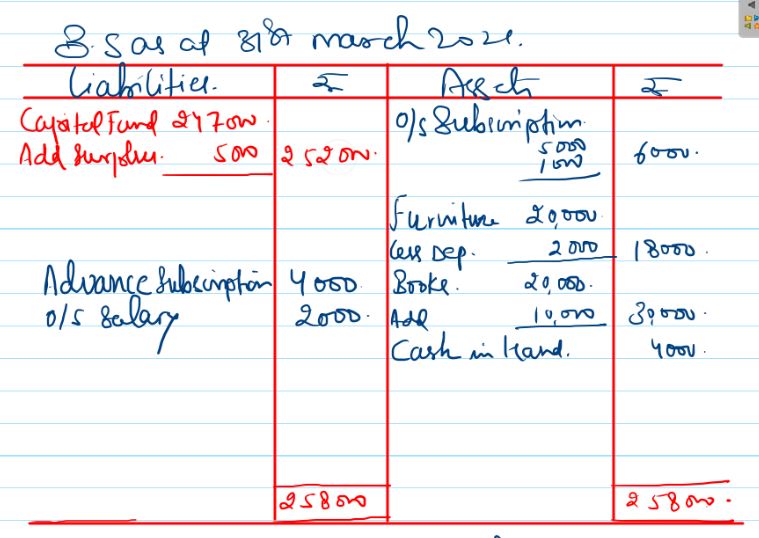 B.S as at 31st march 2021.
Liabilities. ₹ Assets ₹
Capital Fund 247000.
Add Surplus. 5000 252000.
O/s Subscription
5000
1000 6000.
Furniture 20,000
Less Dep. 2000 18000.
Advance Subscription 4000. Books. 20,000.
O/s Salary 2000. Add 10,000 30,000.
Cash in Hand. 4000.
258000 258000.